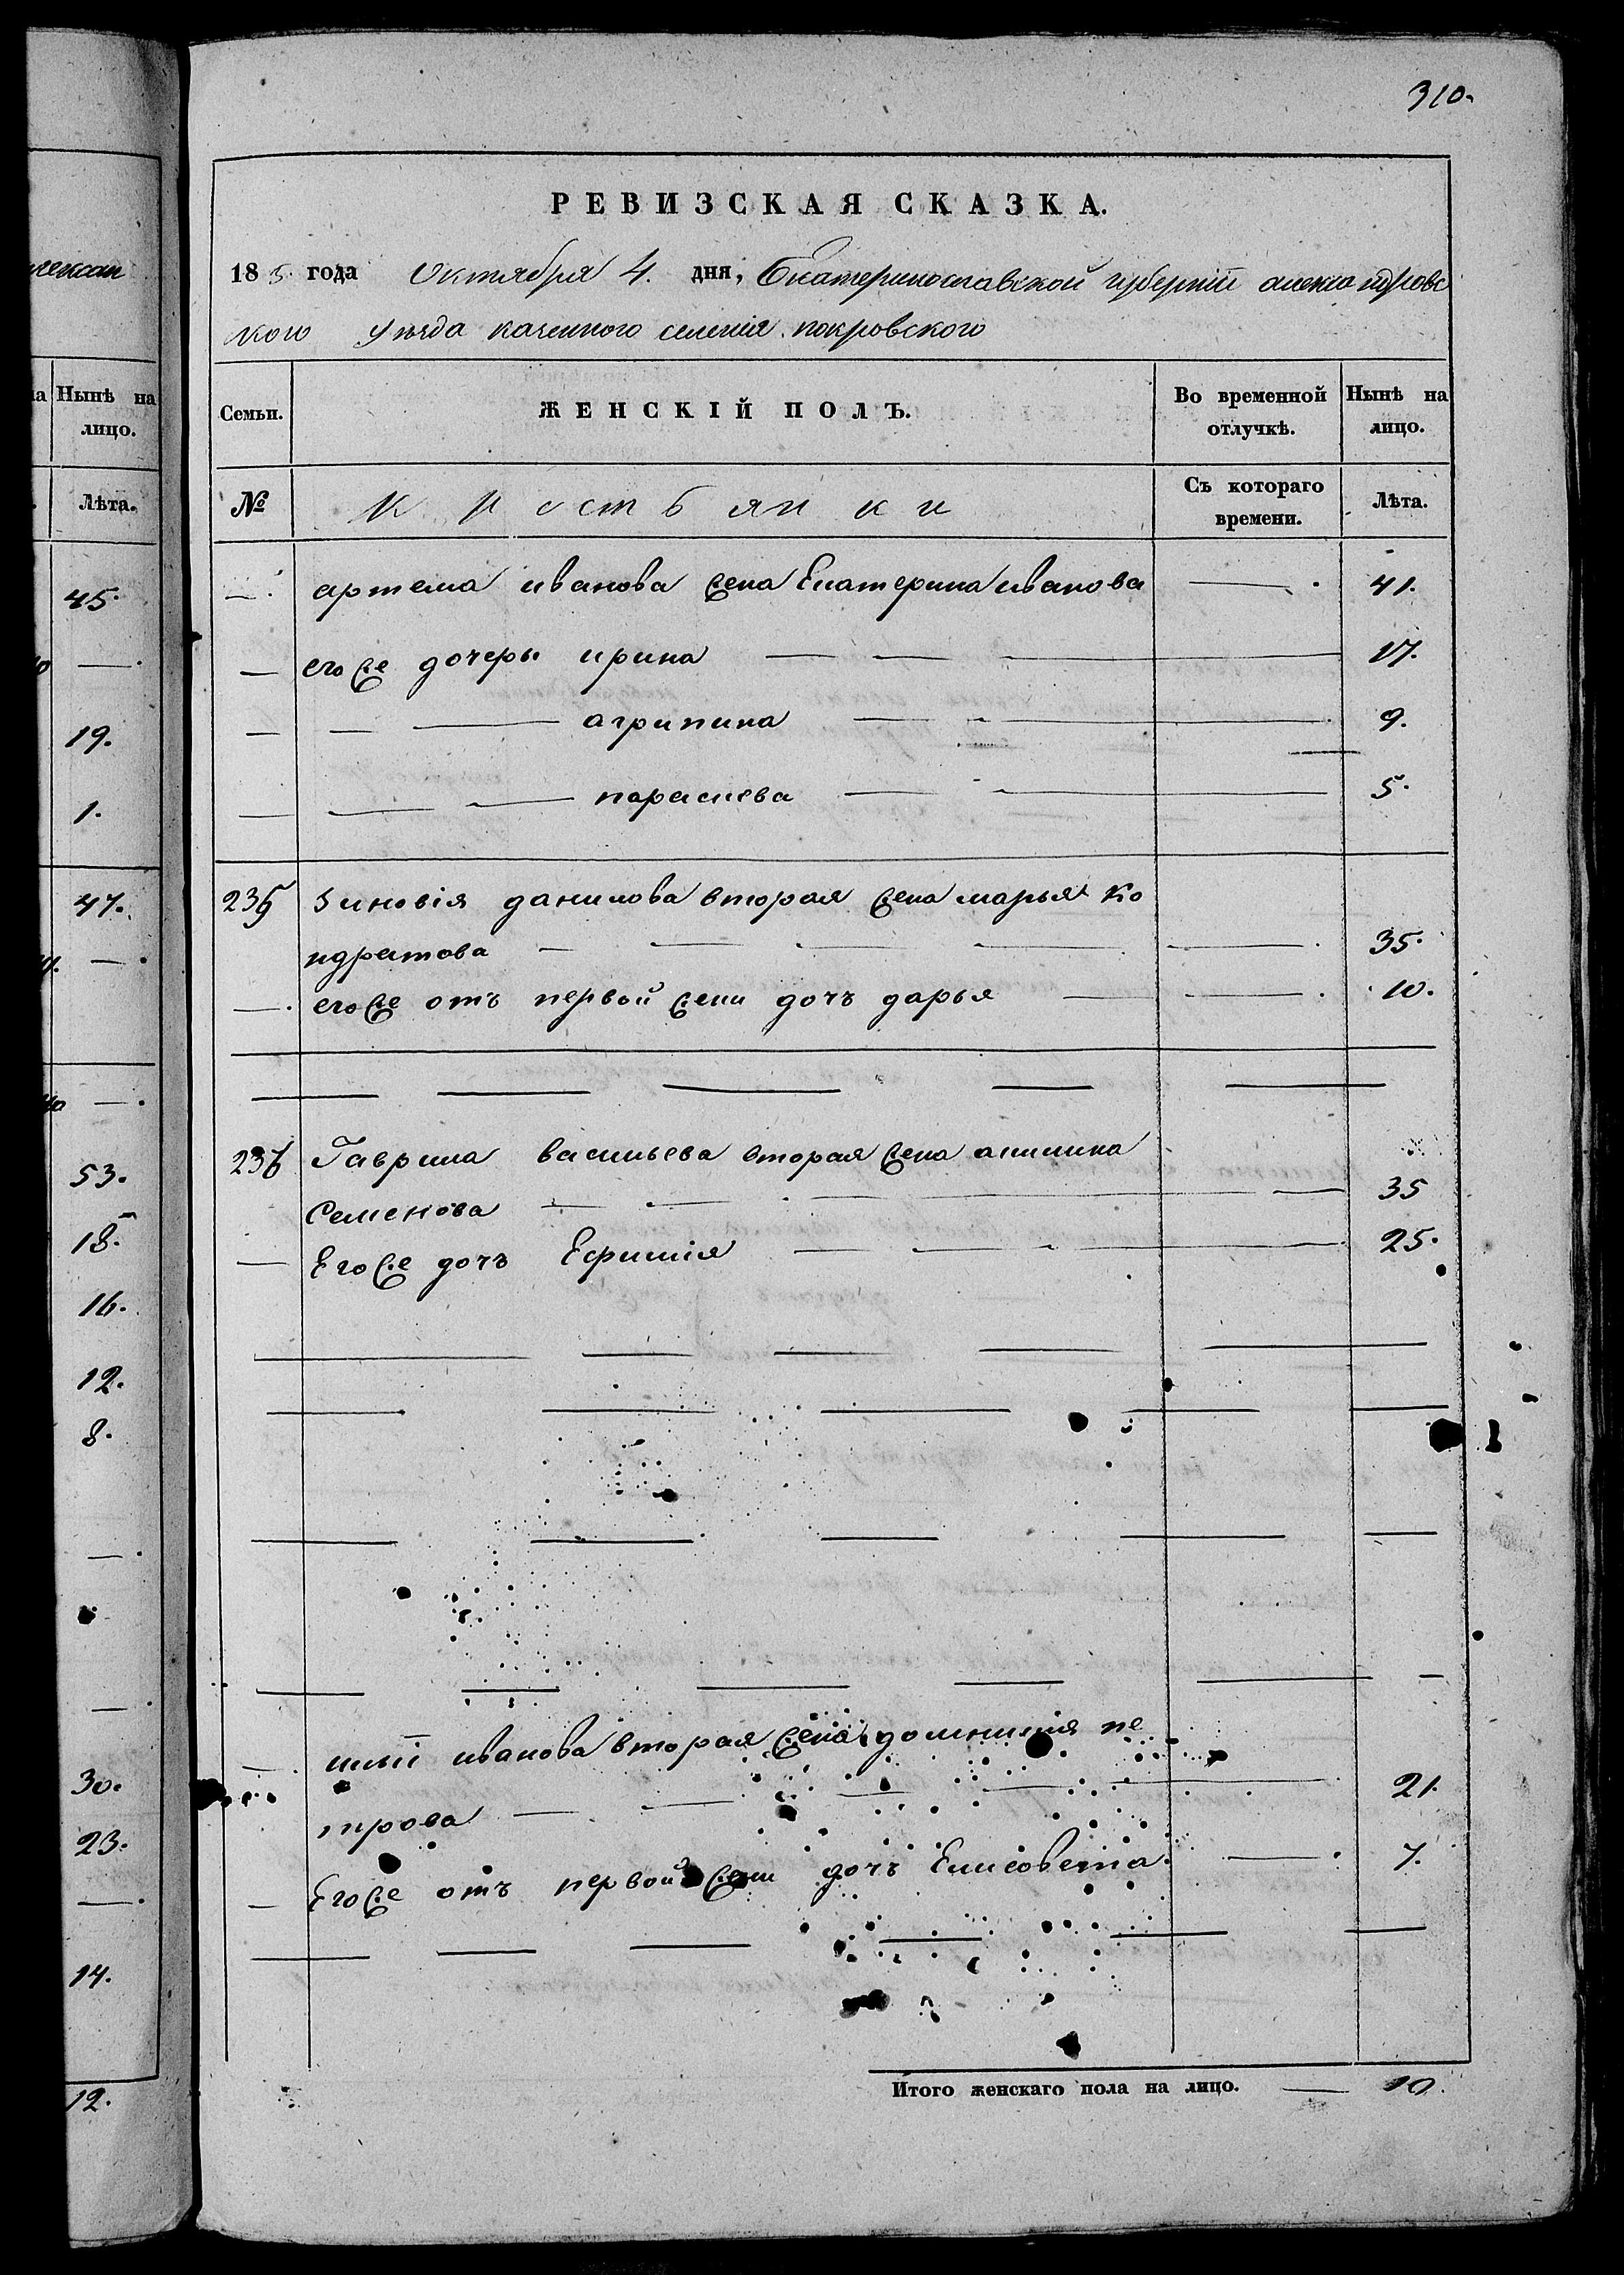 лексан
на Нынѣ на
лицо.
Лѣта.
45.
—.
19.
1.
47.
—.
—.
53.
18.
16.
12.
8.
30.
23.
14.
12.
310.
РЕВИЗСКАЯ СКАЗКА.
185 года Октября 4. дня, Екатеринославской губернии александровс
кого уезда казенного селения покровского
Семьи. ЖЕНСКІЙ ПОЛЪ. Во временной отлучкѣ. Нынѣ на лицо.
№ крестьянки Съ котораго времени. Лѣта.
артема иванова жена Екатерина иванова — 41.
— его же дочеры ирина — 17.
— — — агрипина — 9.
— — — параскева — 5.
235 зиновія данилова вторая жена марья ко
ндратова — 35.
— его же отъ первой жени дочъ дарья — 10.
236 Гаврила васильева вторая жена акилина
Семенова — 35
— Его же дочъ Ефимія — 25.
— иванова вторая жена домникия пе
трова — 21.
— Его же отъ первой жени дочъ Елисовета — 7.
Итого женскаго пола на лицо. — 10.